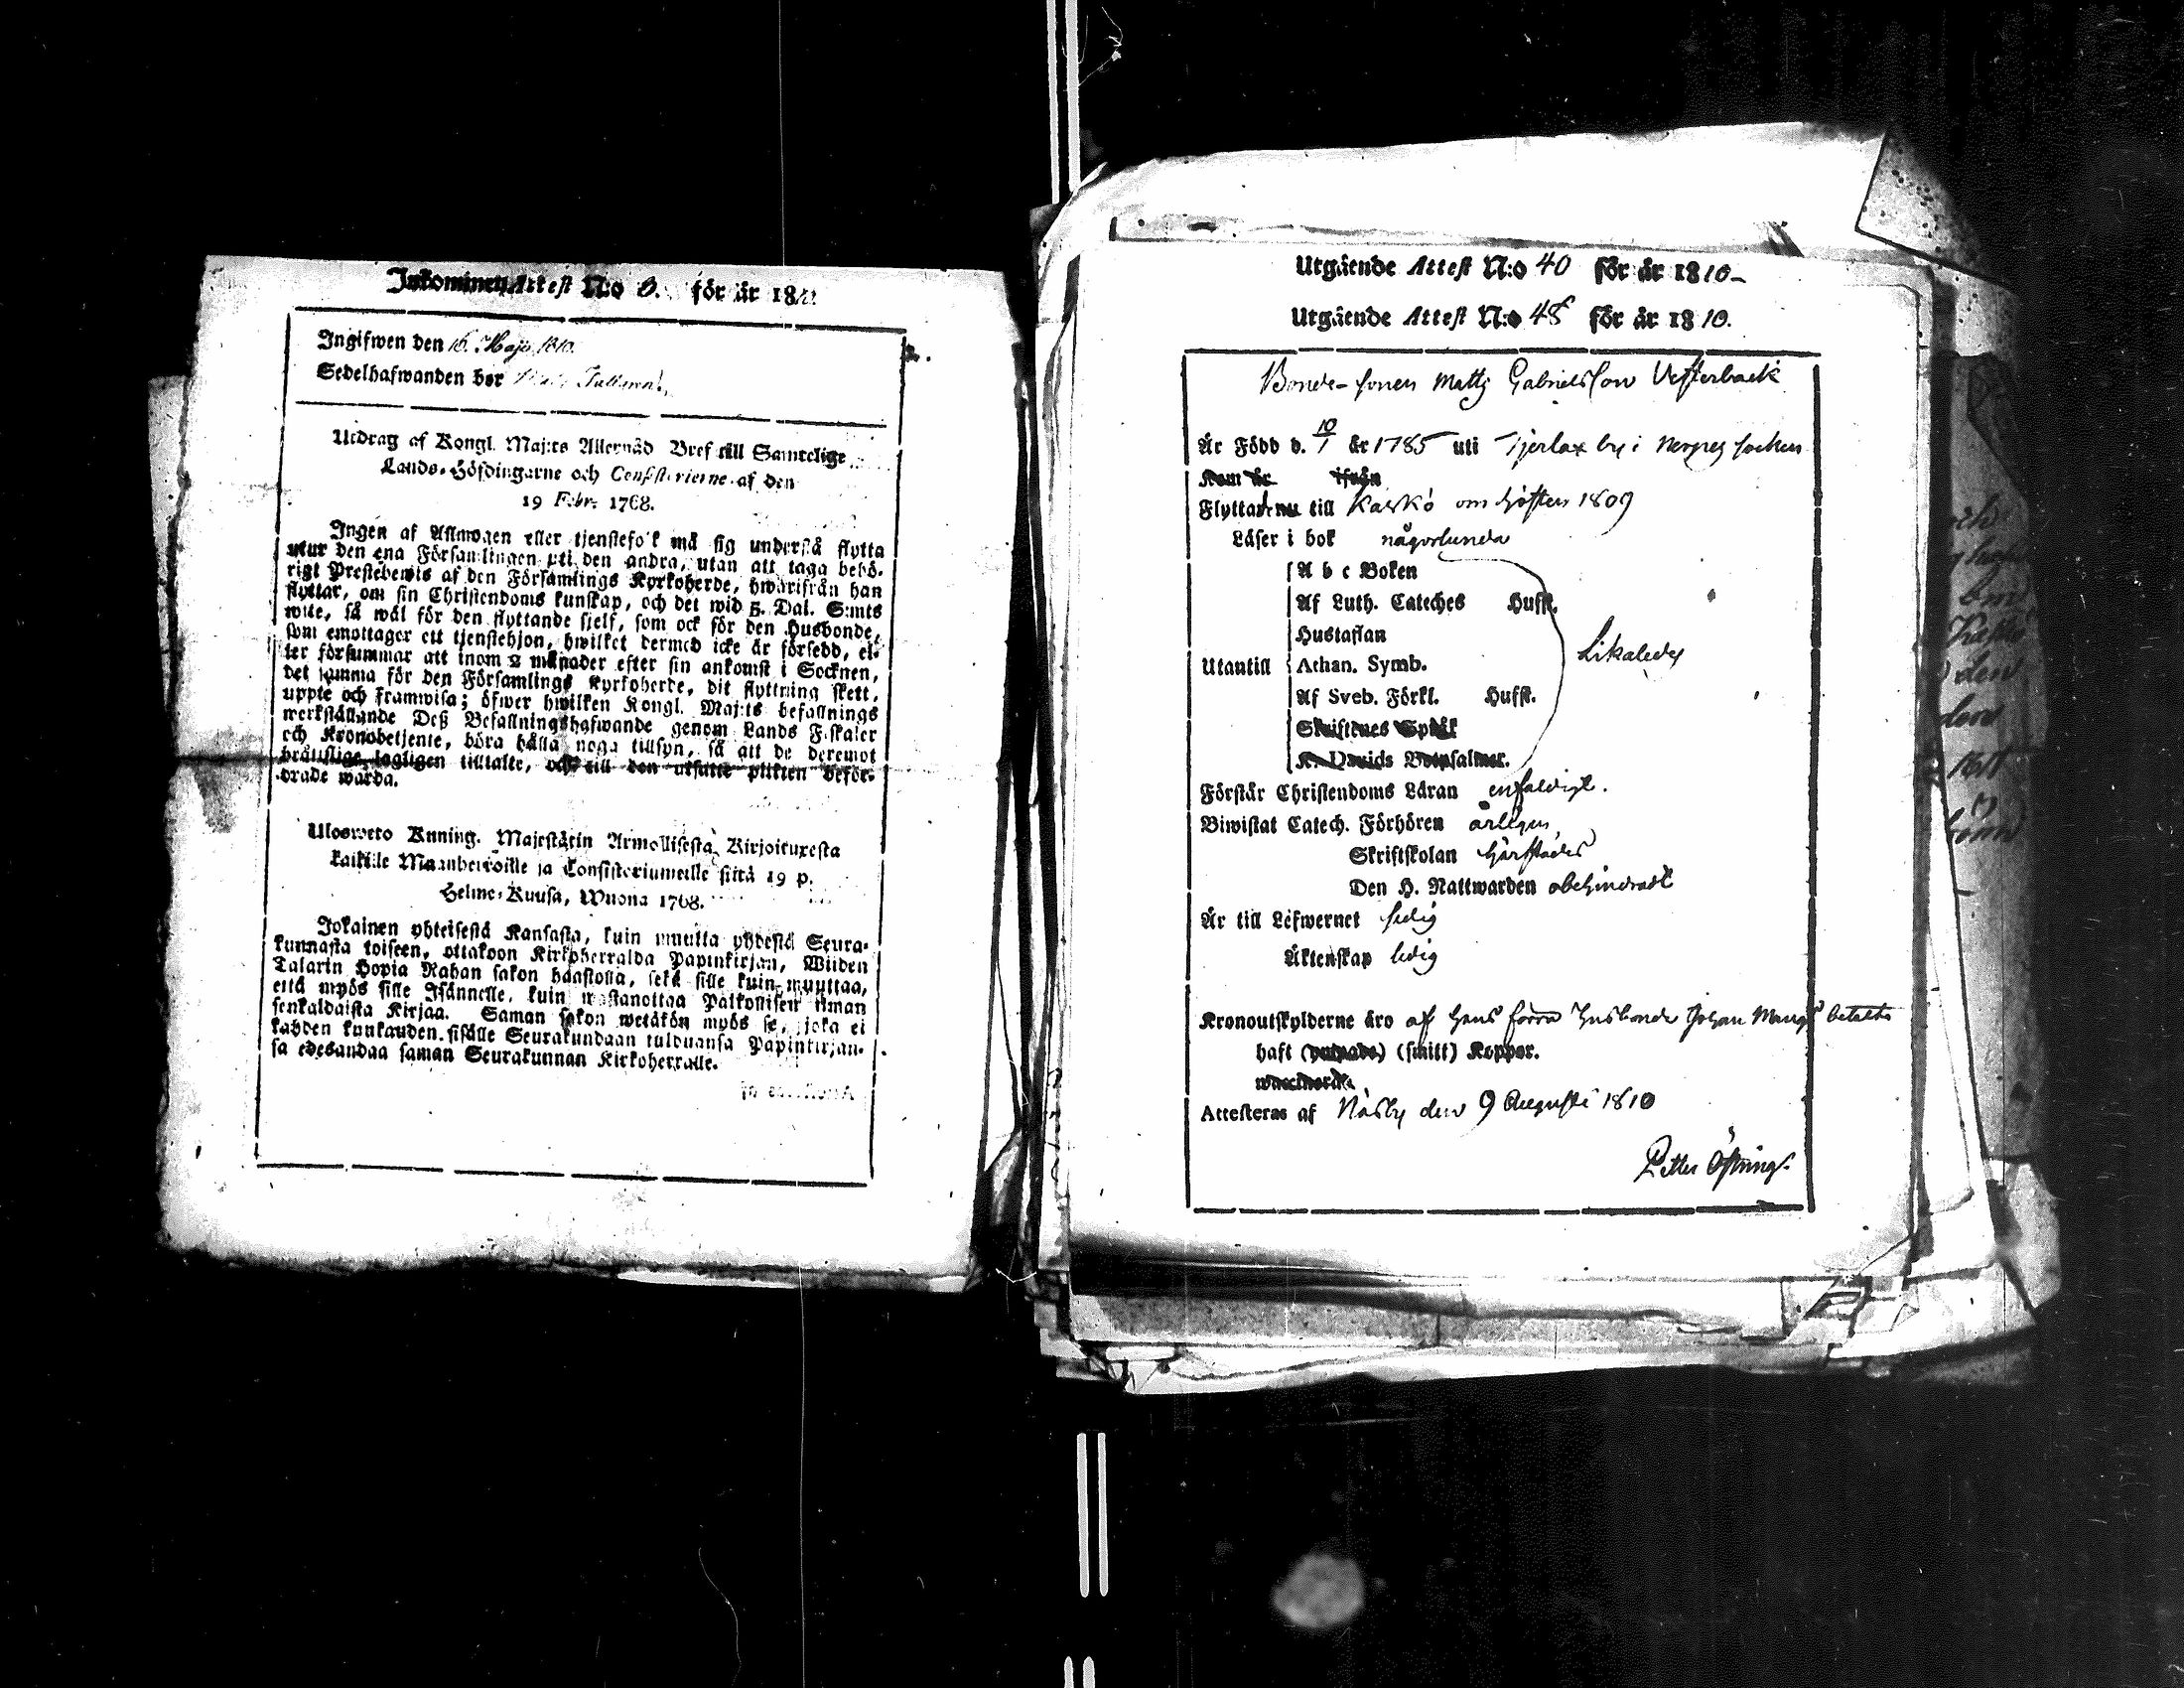 Inkommen Attest N:o 8. för år 18
Ingifwen den 16. Maji 1810.
Sedelhafwanden bor
Utdrag af Kongl. Maj:ts Allernåd Bref till Samtelige
Lands-Höfdingarne och Consistorierne af den
19 Febr. 1768.
Ingen af Allmogen eller tjenstefolk må sig understå flytta
utur den ena Församlingen uti den andra, utan att taga behö-
rigt Prestebewis af den Församlings Kyrkoherde, hwarifrån han
flyttar, om sin Christendoms kunskap, och det wid 5. Dal. S:mts
wite, så wäl för den flyttande sjelf, som ock för den Husbonde,
som emottager ett tjenstehjon, hwilket dermed icke är försedd, el-
ler försummar att inom 2 månader efter sin ankomst i Socknen,
det samma för den Församlings Kyrkoherde, dit flyttning skett,
uppte och framwisa; öfwer hwilken Kongl. Maj:ts befallnings
werkställande Deß Befallningshafwande genom Lands F.skaler
och Kronobetjente, böra hålla noga tillsyn, så att de deremot
brålislige lagligen tilltalte, och till den utsatte plikten beför-
drade warda.
Ulosweto Kuning. Majestätin Armollisesta Kirjoituxesta
kaikille Maanherroille ja Consistoriumeille siitä 19 p.
Helme-Kuusa, Wuona 1768.
Jokainen yhteisestä Kansasta, kuin muutta yhdestä Seura-
kunnasta toiseen, ottakoon Kirkoherralda Papinkirjan, Wiiden
Talarin Hopia Rahan sakon haastolla, sekä sille kuin muuttaa,
että myös sille Isännelle, kuin wastanottaa Palkollisen ilman
senkaldaista Kirjaa. Saman sakon wetäkön myös se, joka ei
kahden kuukauden sisälle Seurakundaan tulduansa Papinkirjan-
sa edesandaa saman Seurakunnan Kirkoherralle.
Utgående Attest N:o 40 för år 1810
Utgående Attest N:o 48 för år 1810.
Bonde-sonen Matts Gabrielsson Vesterback
Är Född d. 10/1 år 1785 uti Tjerlax by i Nerpes socken
Kom år ifrån
Flyttade nu till Kaskö om hösten 1809
Läser i bok någorlunda
A b c Boken
Af Luth. Cateches Hufst.
Hustaflan
Utantill Athan. Symb. Likaledes
Af Sveb. Förkl. Hufst.
Skriftenes Språk
K. Davids Botpsalmer.
Förstår Christendoms Läran enfaldigt.
Biwistat Catech. Förhören årligen
Skriftskolan härstädes
Den H. Nattwarden obehindradt
Är till Lefwernet sedig
Äktenskap ledig
Kronoutskylderne äro af hans förra Husbonde Johan Mangs betalte
haft (smitt) Koppor.
Attesteras af Näsby den 9 Augusti 1810
Petter Östring